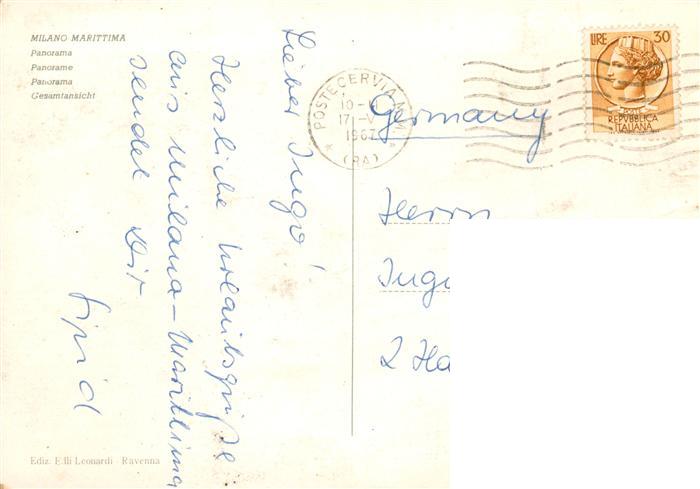 MILANO MARITTIMA
Panorama
Panorame
Panorama
Gesamtansicht
Lieber Ingo!
Herzliche Urlaubsgrüße
aus Milano-Marittima
sendet Dir
Ediz. F.lli Leonardi - Ravenna
POSTE CERVIA M.MA
10-
17-V
1967
(RA)
LIRE 30
POSTE
REPVBBLICA
ITALIANA
Germany
Herrn
Ingo
2 Ha